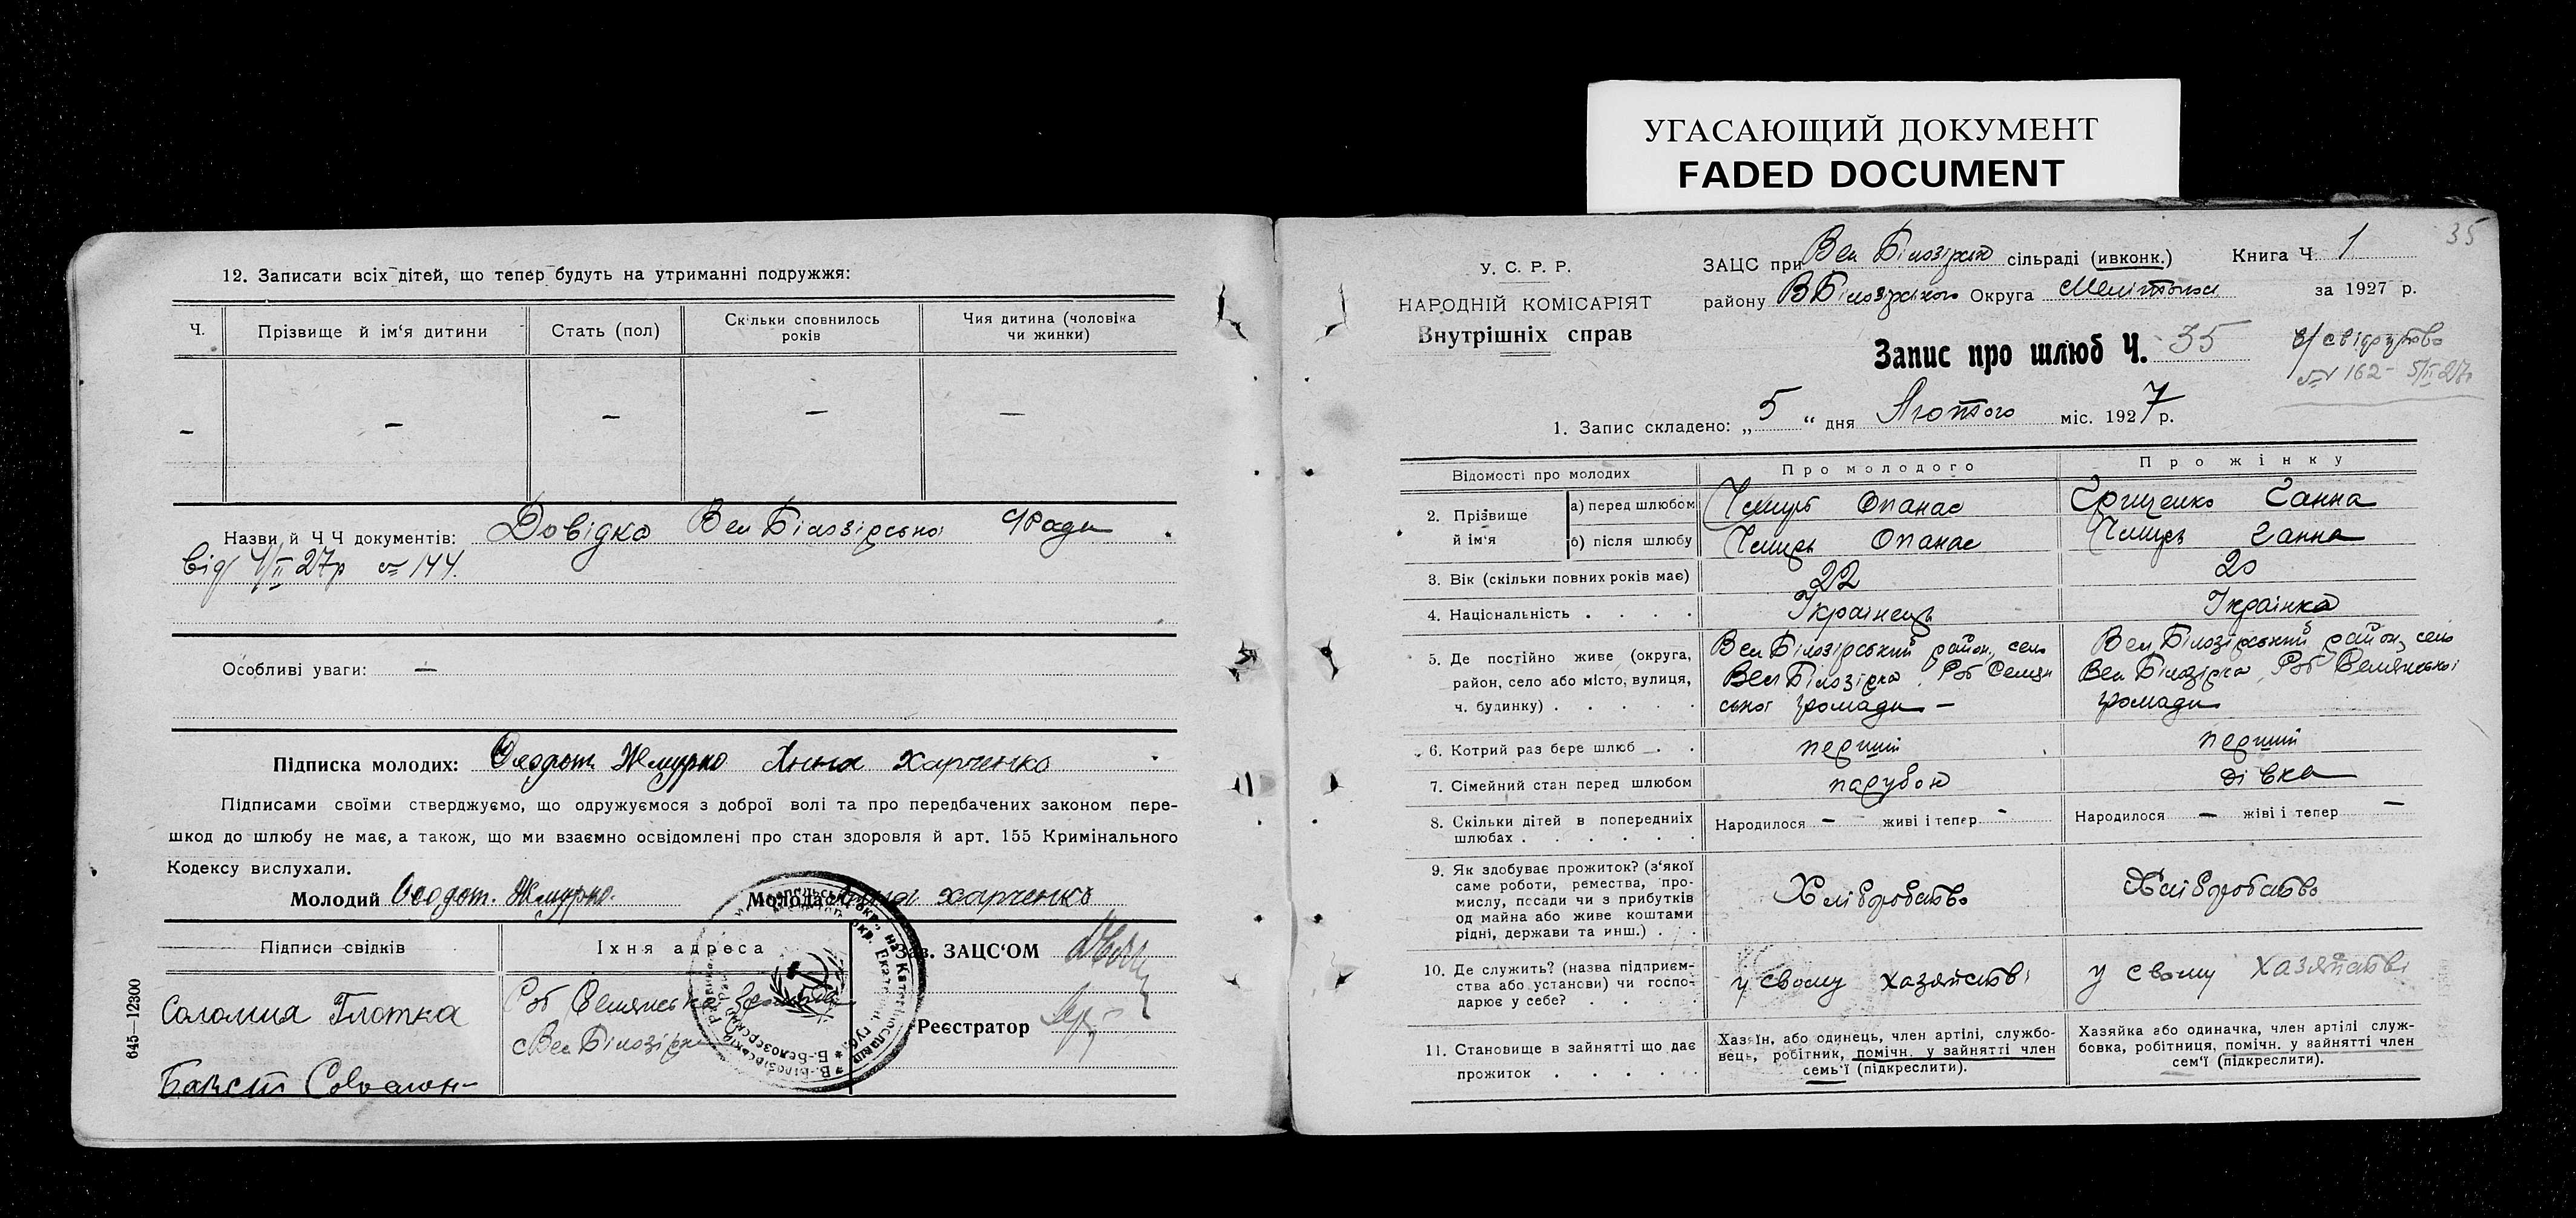 УГАСАЮЩИЙ ДОКУМЕНТ
FADED DOCUMENT
12. Записати всіх дітей, що тепер будуть на утриманні подружжя:
Ч.
Прізвище й ім‘я дитини
Стать (пол)
Скільки сповнилось років
Чия дитина (чоловіка чи жинки)
– – – – –
Назви й Ч Ч документів: Довідка Вел Білозірської Ради
від 4/II 27р № 144.
Особливі уваги: —
Підписка молодих: Феодот Жмурко Анна Харченко
Підписами своїми стверджуємо, що одружуємося з доброї волі та про передбачених законом пере-
шкод до шлюбу не має, а також, що ми взаємно освідомлені про стан здоровля й арт. 155 Кримінального
Кодексу вислухали.
Молодий Феодот Жмурко. Молода Анна Харченко
Підписи свідків
Їхня адреса
Зав. ЗАЦС‘ОМ
Соломия Глотка
с Вел Білозірка
Реєстратор
645—12300
35
У. С. Р. Р.
НАРОДНІЙ КОМІСАРІЯТ
Внутрішніх справ
ЗАЦС при Вел Білозіркій сільраді (ивконк.) Книга Ч 1
району ВБілозірського Округа Мелітопол за 1927 р.
Запис про шлюб Ч. 35
№ 162 - 5/II 27р
1. Запис складено: „5“ дня Лютого міс. 1927 р.
Відомості про молодих
Про молодого
Про жінку
2. Прізвище й ім‘я
а) перед шлюбом
Опанас
Грищенко Ганна
б) після шлюбу
Опанас
Ганна
3. Вік (скільки повних років має)
22
20
4. Національність . . . .
Українець
Українка
5. Де постійно живе (округа,
район, село або місто, вулиця,
ч. будинку) . . . . .
Вел Білозірський район, село
Вел Білозірка Роб Селян
ської громади –
Вел Білозірський район, село
Вел Білозірка Роб Селянської
громади
6. Котрий раз бере шлюб . .
перший
перший
7. Сімейний стан перед шлюбом
парубок
дівка
8. Скільки дітей в попередниіх
шлюбах . . . . . .
Народилося – живі і тепер –
Народилося – жіві і тепер –
9. Як здобуває прожиток? (з‘якої
саме роботи, ремества, про-
мислу, посади чи з прибутків
од майна або живе коштами
рідні, держави та инш.) . .
Хліборобство
Хліборобство
10. Де служить? (назва підприєм-
ства або установи) чи госпо-
дарює у себе? . . . .
у свому хазяйстві
у свому хазяйстві
11. Становище в зайнятті що дає
прожиток . . . . .
Хазяїн, або одинець, член артілі, службо-
вець, робітник, помічн. у зайнятті член
семь‘ї (підкреслити).
Хазяйка або одиначка, член артілі служ-
бовка, робітниця, помічн. у зайнятті член
сем‘ї (підкреслити).